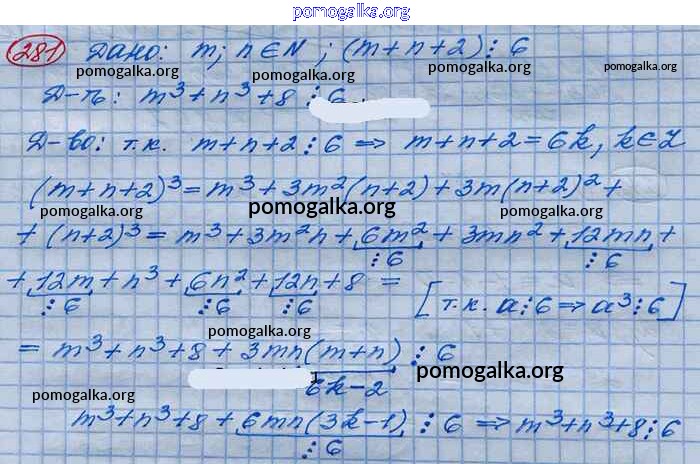 pomogalka.org
281 Дано: m; n ∈ N; (m+n+2)⋮6
pomogalka.org pomogalka.org
Д-ть: m³+n³+8 ⋮ 6
Д-во: т.к. m+n+2⋮6 => m+n+2=6k, k∈Z
(m+n+2)³ = m³+3m²(n+2)+3m(n+2)²+
pomogalka.org pomogalka.org pomogalka.org
+(n+2)³ = m³+3m²n+6m²+3mn²+12mn+
⋮6 ⋮6
+12m+n³+6n²+12n+8 =
⋮6 ⋮6 ⋮6 [т.к. a⋮6 => a³⋮6]
pomogalka.org
= m³+n³+8+3mn(m+n) ⋮ 6
6k-2
pomogalka.org pomogalka.org
m³+n³+8+6mn(3k-1) ⋮ 6 => m³+n³+8⋮6
⋮6
pomogalka.org